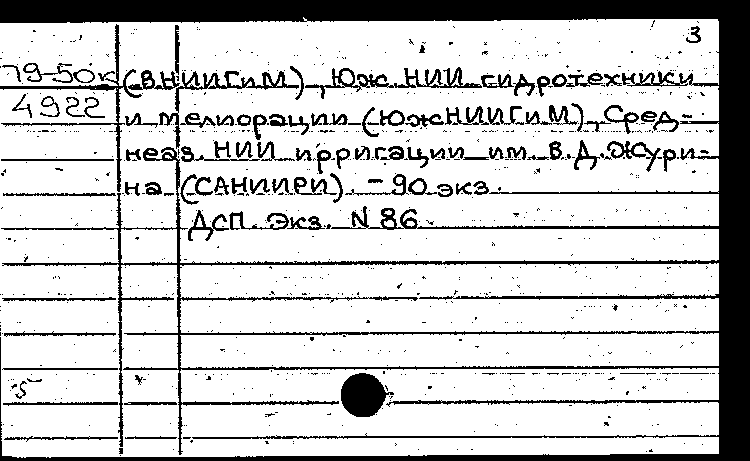 3
79-50к (ВНИИГиМ), Юж. НИИ гидротехники
4922 и мелиорации (ЮжНИИГиМ), Сред-
неаз. НИИ ирригации им. В.Д.Жури-
на (САНИИРИ). - 90 экз.
ДСП. Экз. N 86.
5